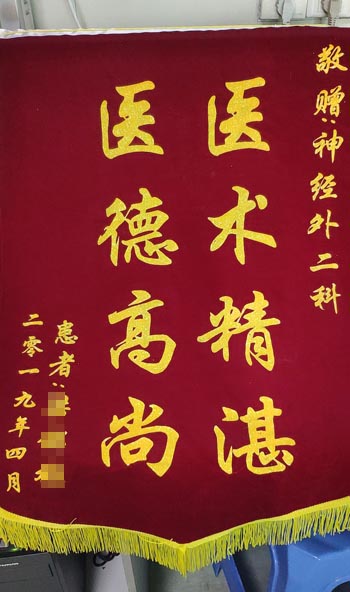 敬赠:神经外二科
医术精湛
医德高尚
患者:
二零一九年四月